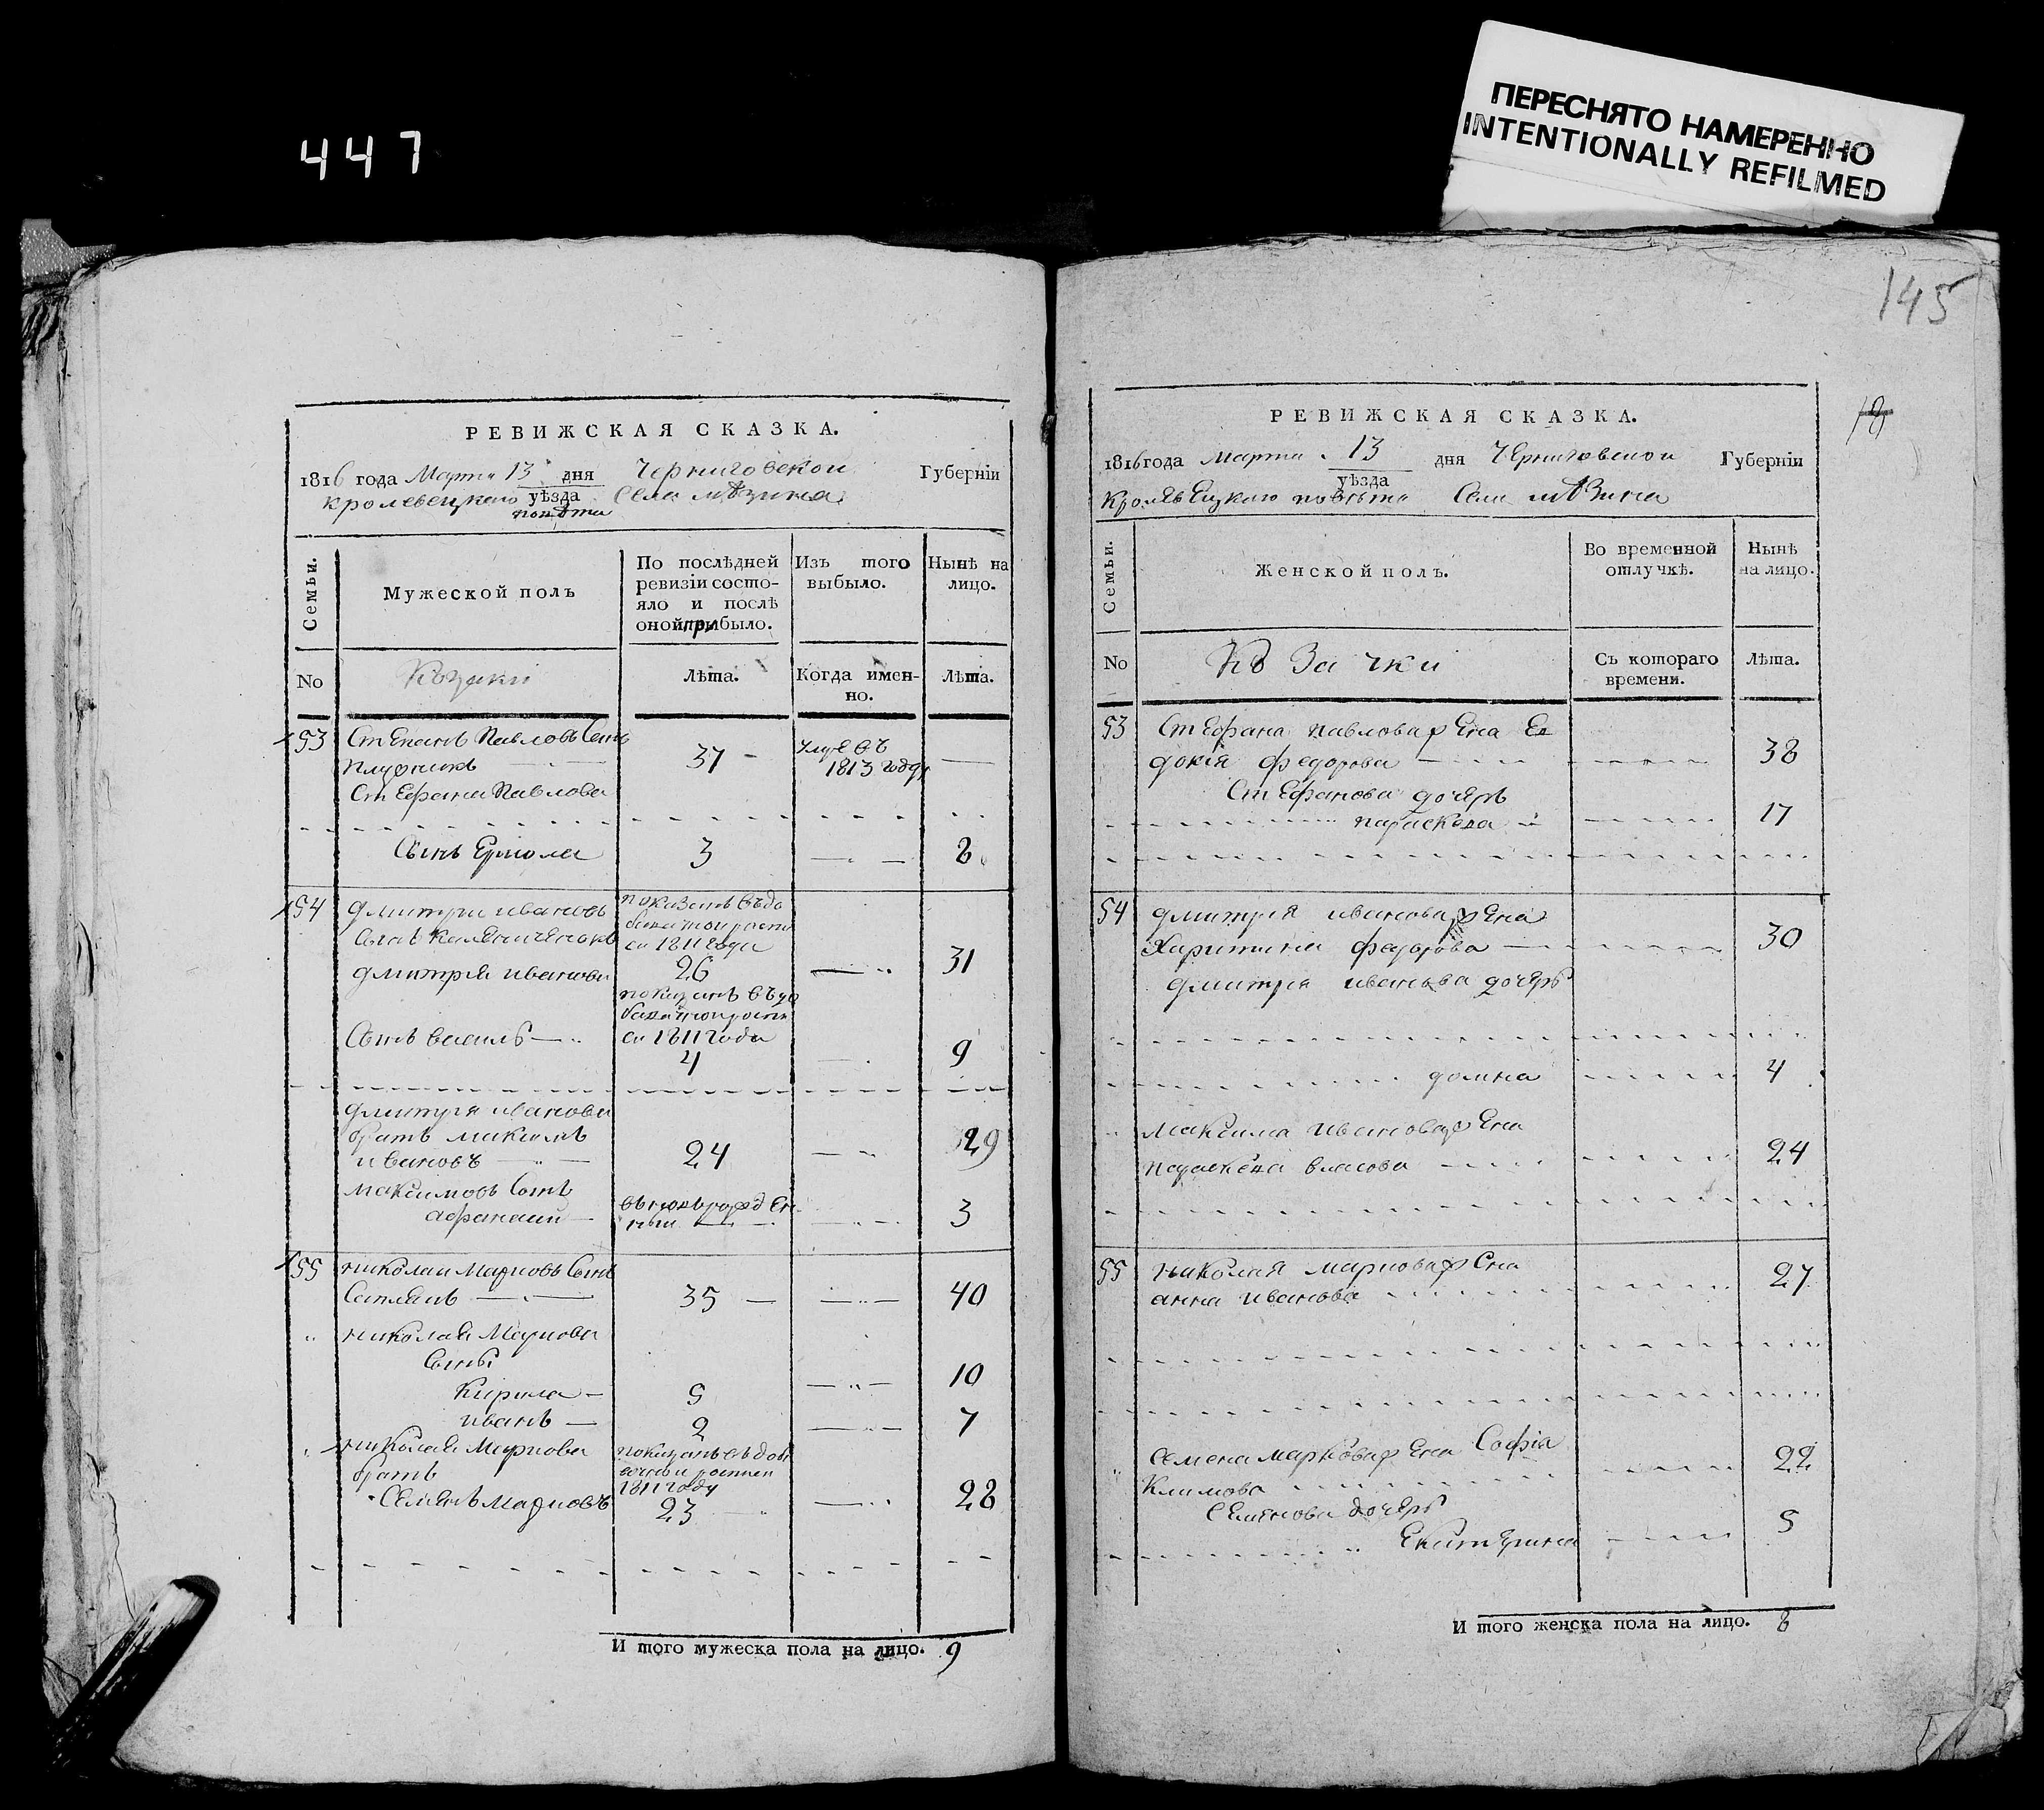 447
ПЕРЕСНЯТО НАМЕРЕННО
INTENTIONALLY REFILMED
РЕВИЖСКАЯ СКАЗКА.
1816 года Марта 13 дня Черниговской Губерніи
кролевецкого уѣзда Села мѣзина
повѣта
Семьи.
Мужеской полъ
По послѣдней
ревизіи состо-
яло и послѣ
оной прибыло.
Изъ того
выбыло.
Нынѣ на
лицо.
No
Козаки
Лѣта.
Когда имен-
но.
Лѣта.
53 Степанъ Павловъ Сынъ
37 умре въ
1813 году
Стефана Павлова
Сынъ Ермола 3 8
54 дмитри ивановъ показанъ въ до
Сынъ
си 1811 года
дмитрія иванова 26 31
показанъ въ до
Сынъ василь си 1811 года
4 9
дмитрія иванова
братъ максимъ
ивановъ 24 29
максимовъ Сынъ
афанаси 3
55 николай Марковъ Сынъ
35 40
николая Маркова
Сыны
Кирила 5 10
иванъ 2 7
николая Маркова показанъ въ
братъ
1811 году
Семенъ Марковъ 23 28
И того мужеска пола на лицо. 9
145
18
РЕВИЖСКАЯ СКАЗКА.
1816 года Марта 13 дня Черниговской Губерніи
уѣзда
Кролевецкого повѣта Села мѣзина
Семьи.
Женской полъ.
Во временной
отлучкѣ.
Нынѣ
на лицо.
No
Козачки
Съ котораго
времени.
Лѣта.
53 Стефана павлова жена Ев
докія федорова 38
Стефанова дочерь
параскева 17
54 дмитрія иванова жена
Харитина федорова 30
дмитрія иванова дочерь
домна 4
Максима иванова жена
параскева власова 24
55 николая маркова жена
анна иванова 27
Семена маркова жена Софія
Климова 22
Семенова дочерь
Екатерина 5
И того женска пола на лицо. 8